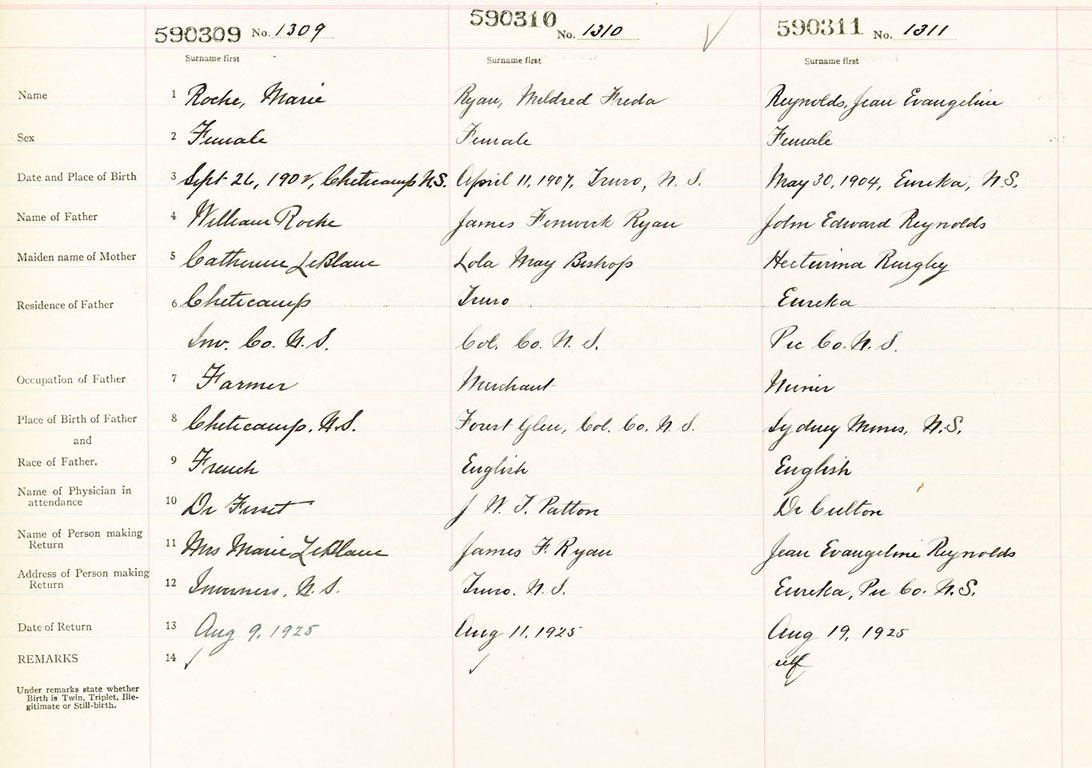 590309 No. 1309 590310 No. 1310 590311 No. 1311
Surname first Surname first Surname first
Name 1 Roche, Marie Ryan, Mildred Freda Reynolds, Jean Evangeline
Sex 2 Female Female Female
Date and Place of Birth 3 Sept 26, 190 Cheticamp N.S. April 11, 1907, Truro, N. S. May 30, 1904, Eureka, N.S.
Name of Father 4 William Roche James Fenwick Ryan John Edward Reynolds
Maiden name of Mother 5 Catherine LeBlanc Lola May Bishop
Residence of Father 6 Cheticamp Truro Eureka
Inv. Co. N.S. Col. Co. N. S. Pic Co. N.S.
Occupation of Father 7 Farmer Merchant Miner
Place of Birth of Father 8 Cheticamp, N.S. Forest Glen, Col. Co. N. S. Sydney Mines, N.S.
and
Race of Father. 9 French English English
Name of Physician in
attendance 10 Dr J W. T. Patton Dr
Name of Person making
Return 11 Mrs Marie LeBlanc James F. Ryan Jean Evangeline Reynolds
Address of Person making
Return 12 Inverness, N.S. Truro. N.S. Eureka, Pic Co. N.S.
Date of Return 13 Aug 9, 1925 Aug 11, 1925 Aug 19, 1925
REMARKS 14 self
Under remarks state whether
Birth is Twin, Triplet, Ille-
gitimate or Still-birth.